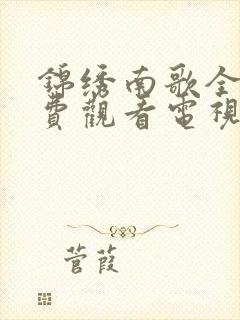 錦绣南歌全
費觀看電視
菅葭